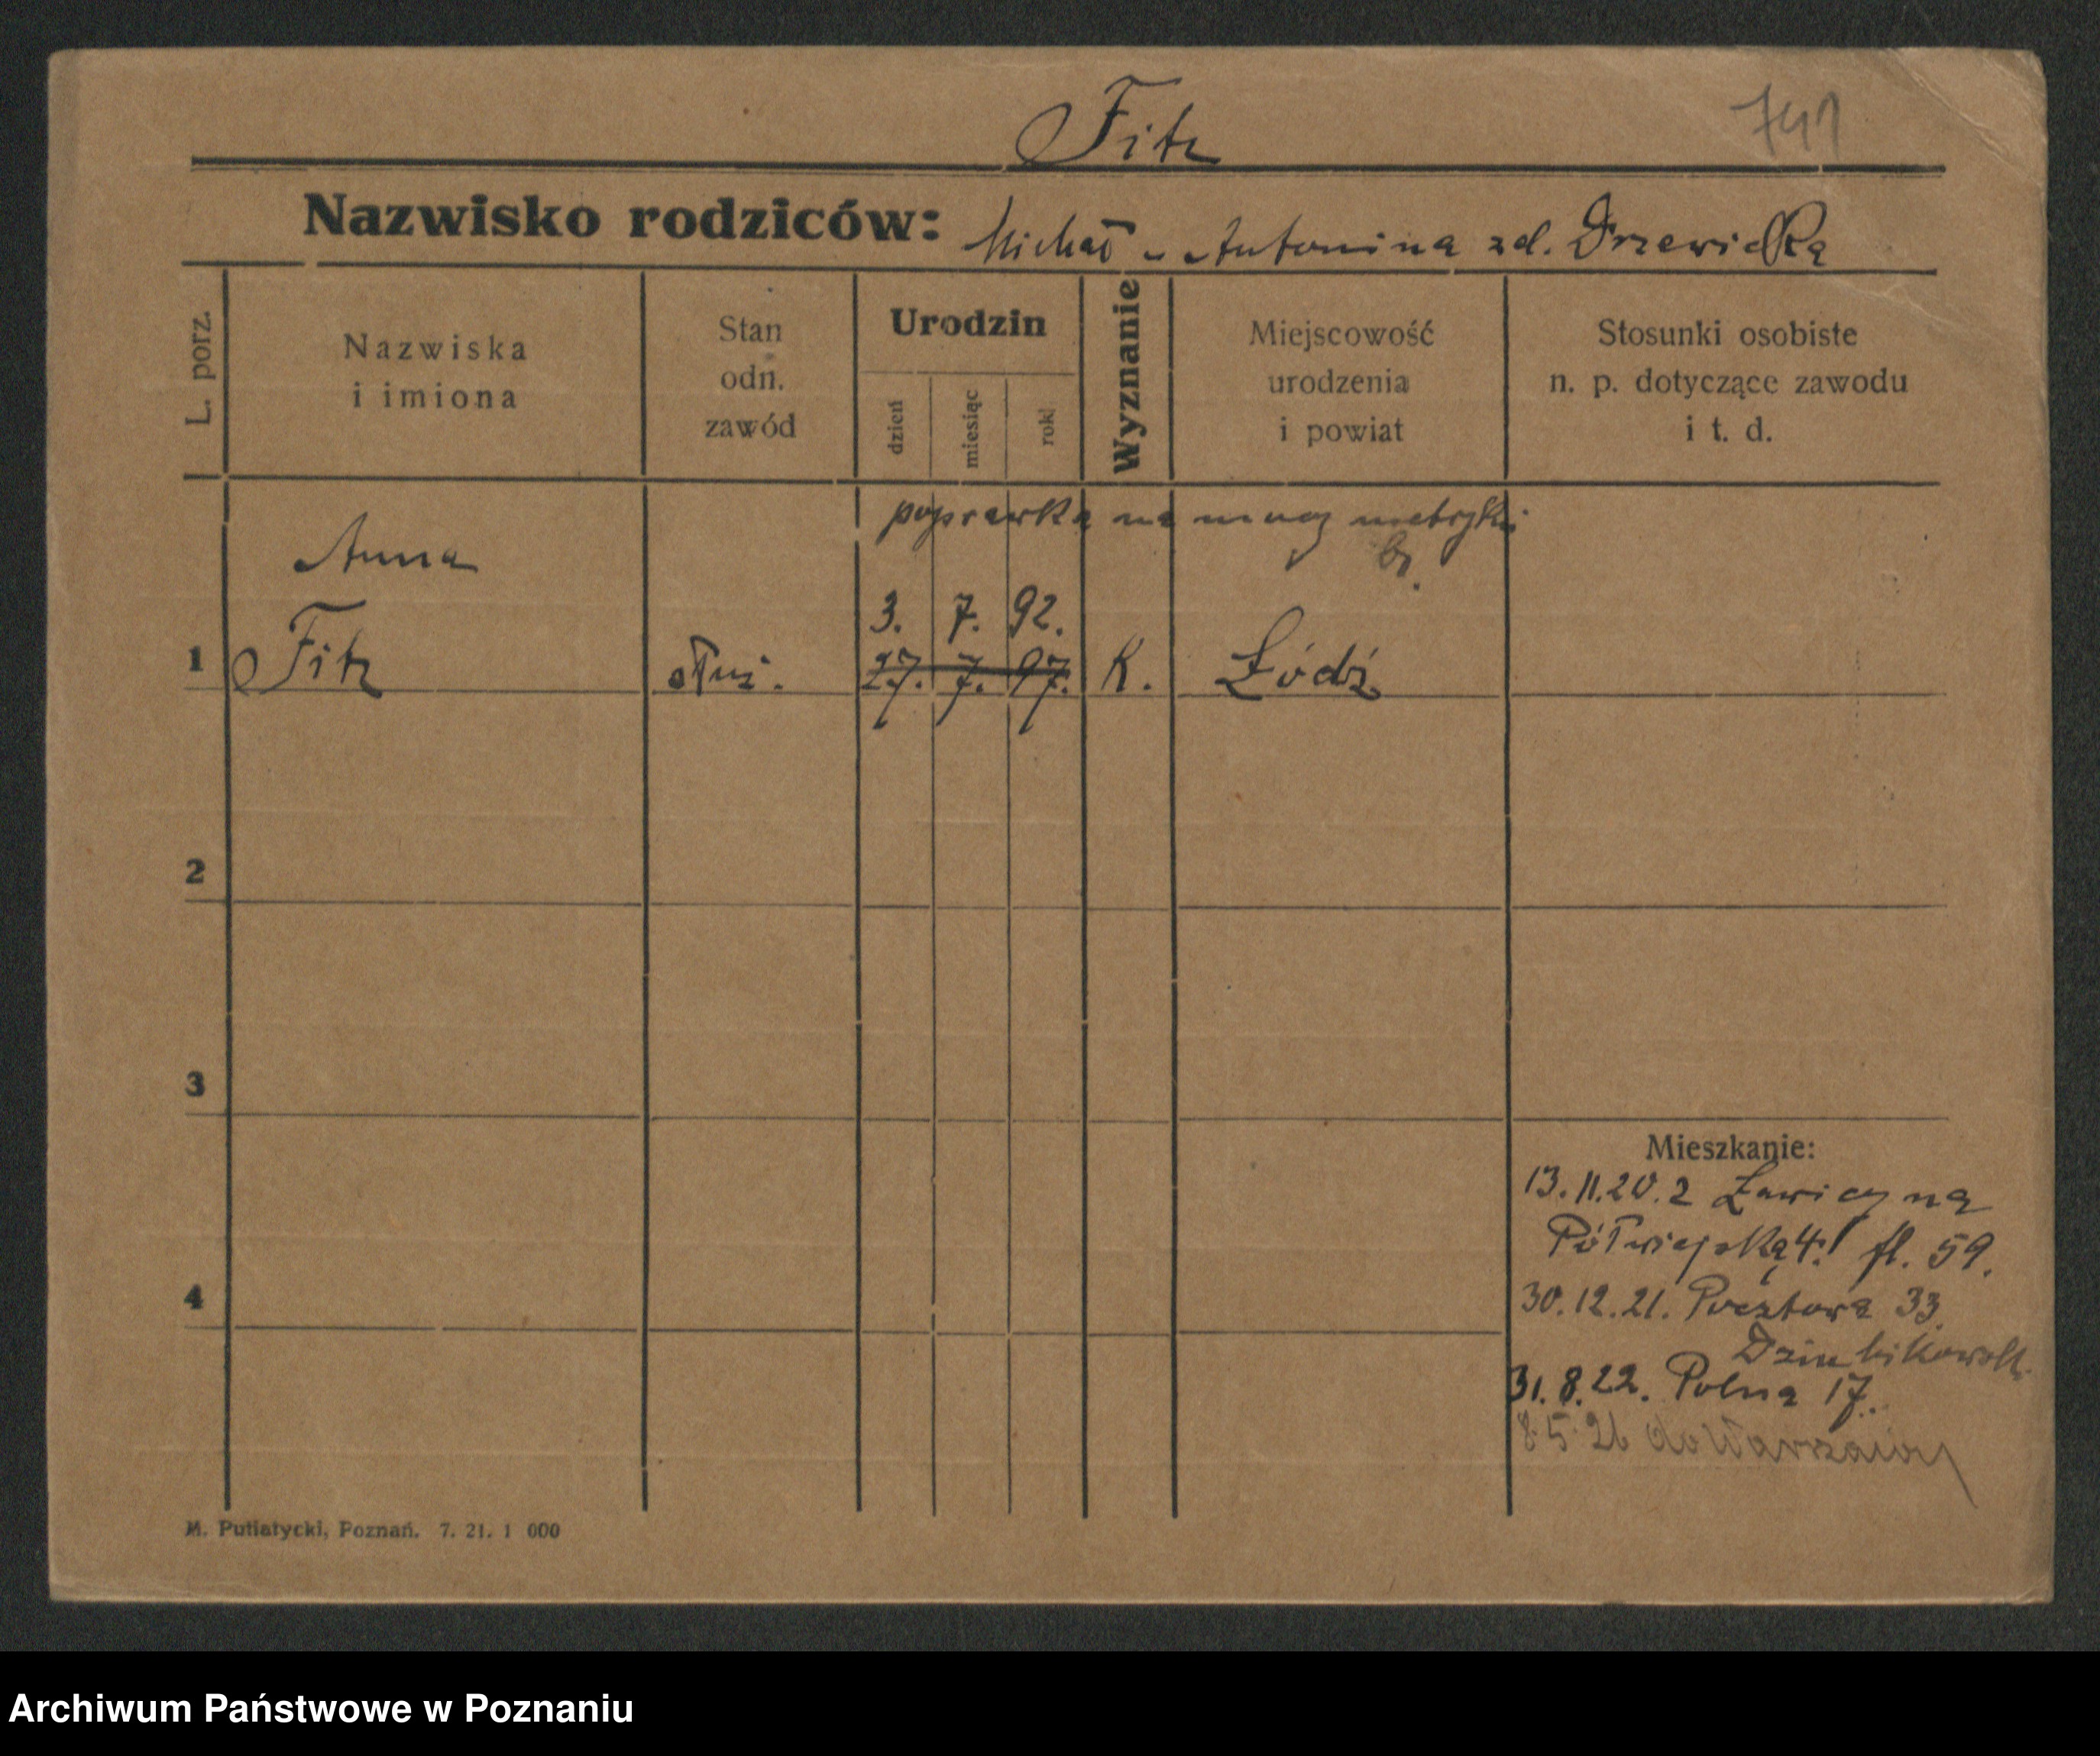 Fitz
741
Nazwisko rodziców: Michał u Antonina zd. Drzewiecka
L. porz.
Nazwiska
i imiona
Stan
odn.
zawód
Urodzin
dzień
miesiąc
rok
Wyznanie
Miejscowość
urodzenia
i powiat
Stosunki osobiste
n. p. dotyczące zawodu
i t. d.
poprawka na mocy metryki
Anna
3. 7. 92.
1 Fitz służ. 27. 7. 97. K. Łódź
2
3
Mieszkanie:
13.11.20. z Ławicy na
Półwiejską 4. fl. 59.
4
30.12.21. Pocztowa 33.
31.8.22. Polna 17.
8.5.26 do Warszawy
M. Putiatycki, Poznań. 7. 21. 1 000
Archiwum Państwowe w Poznaniu